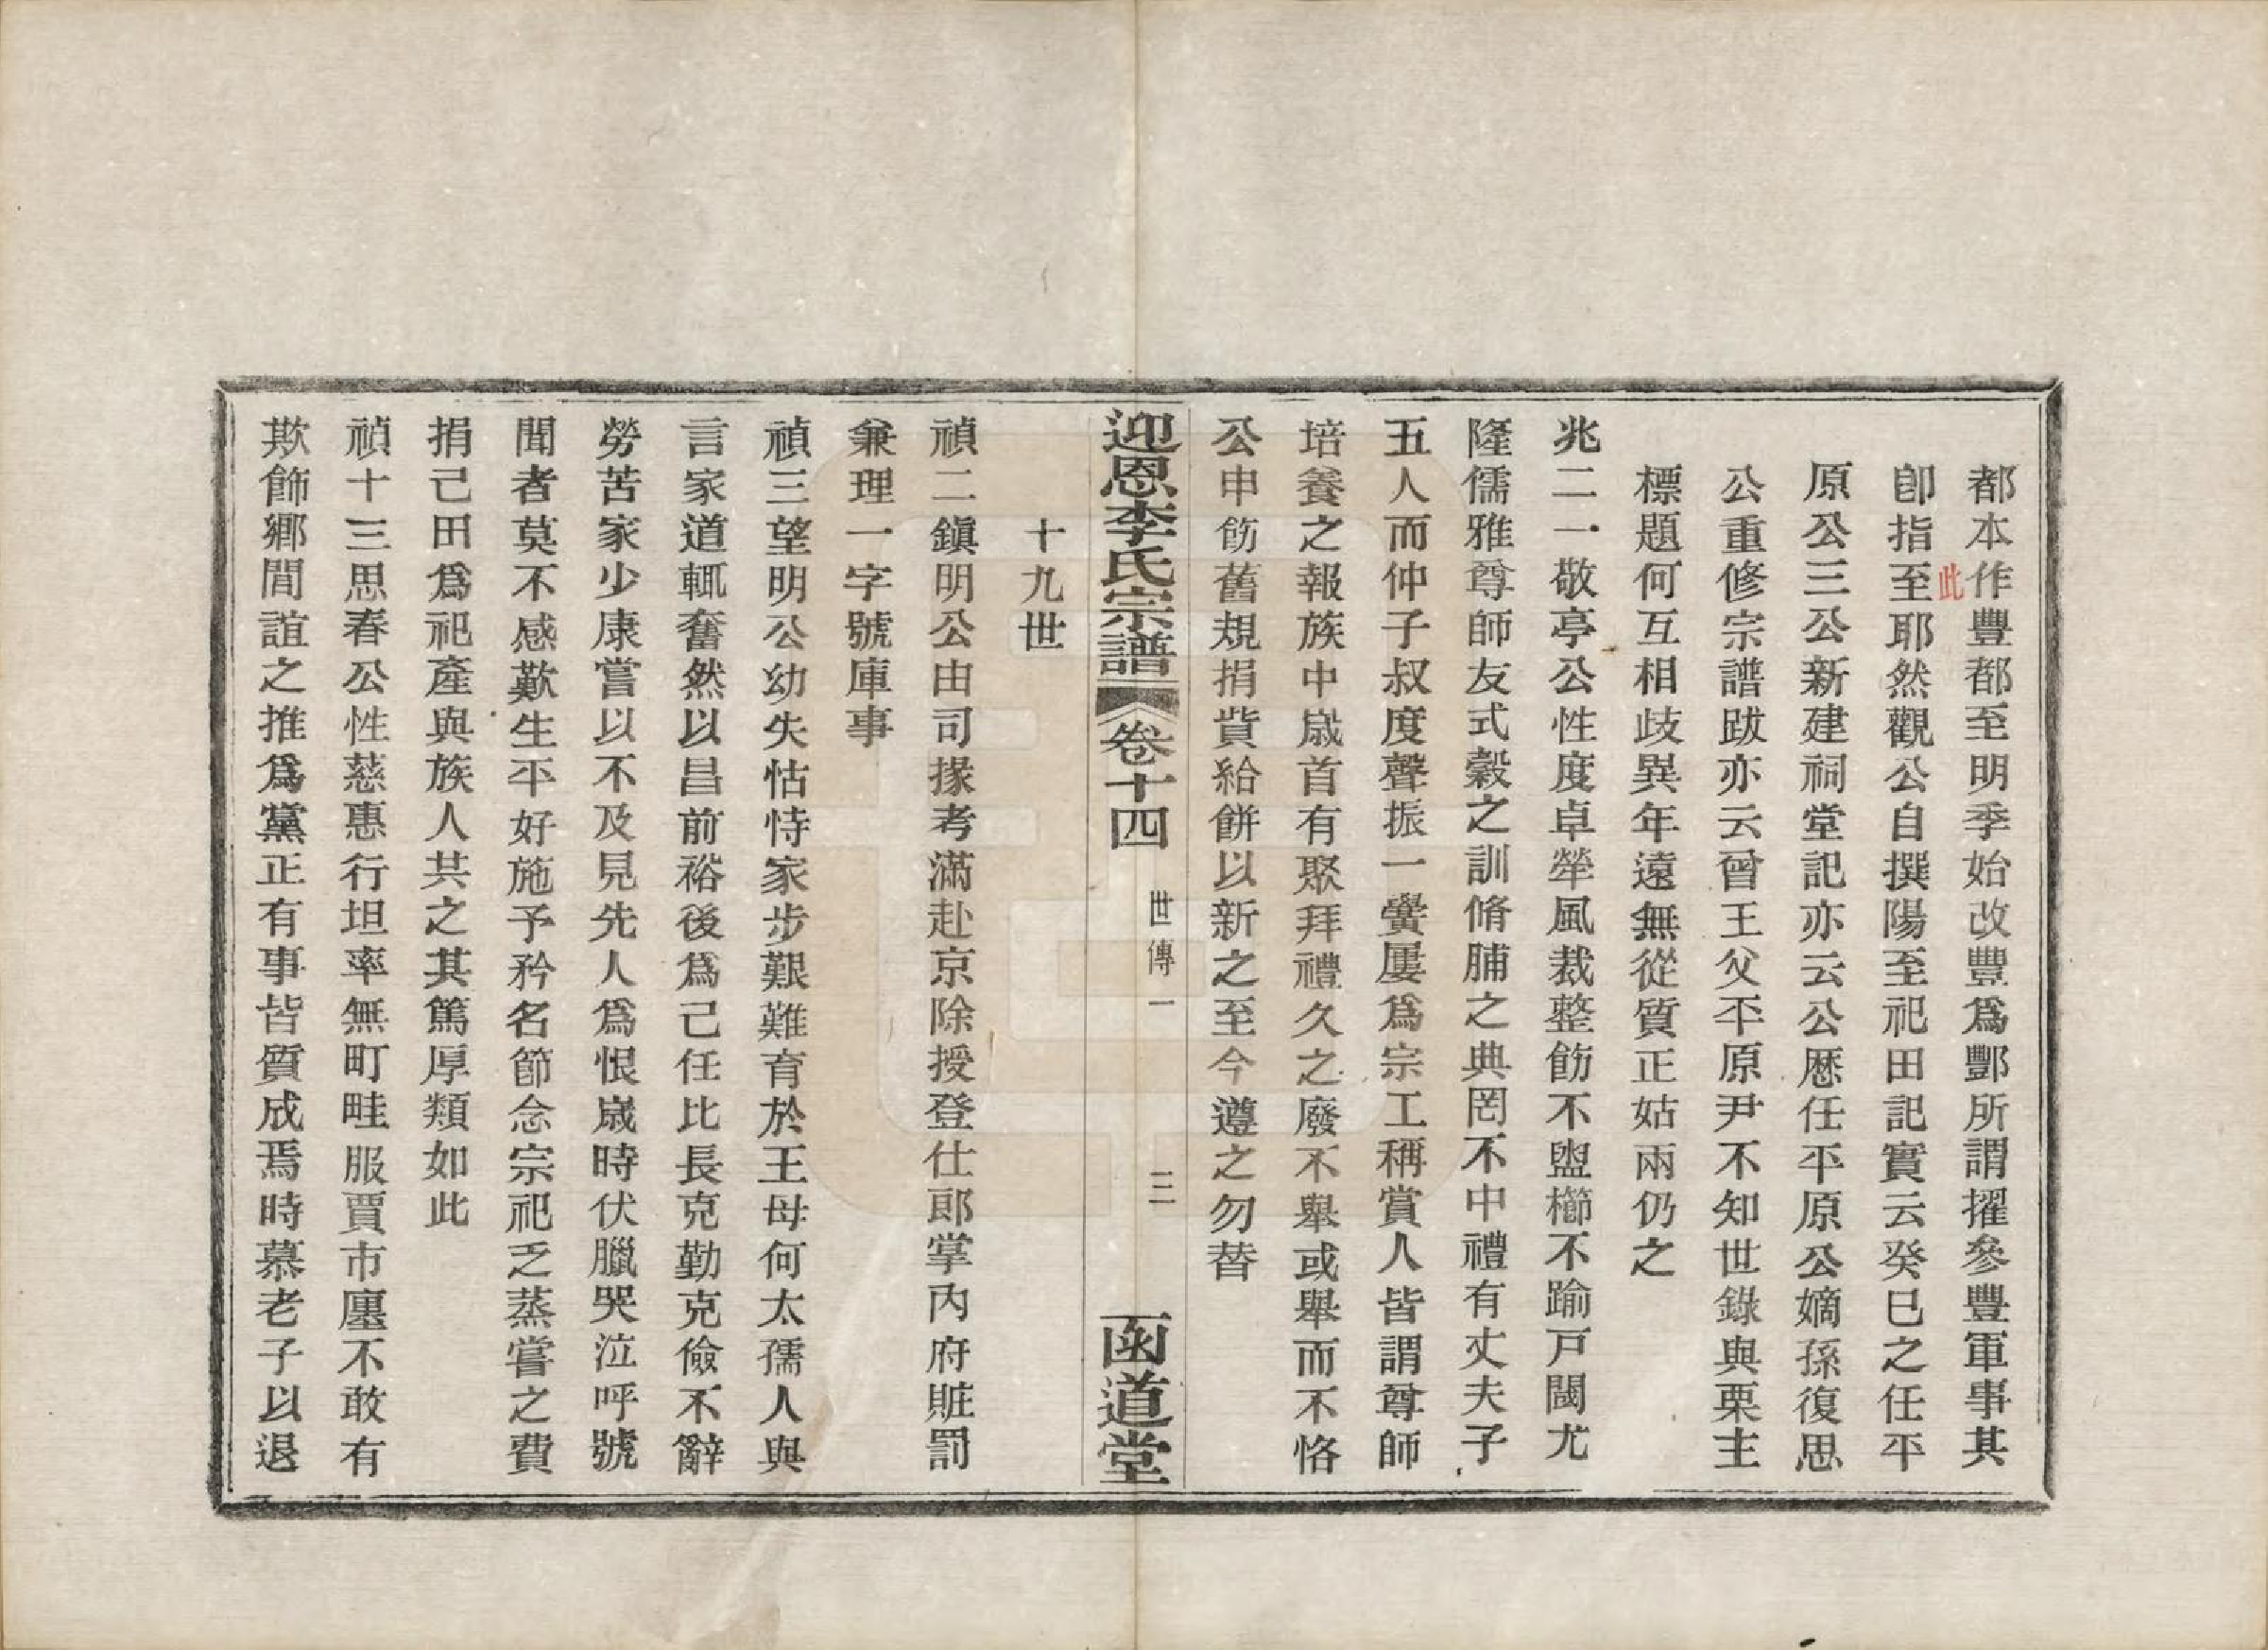 都本作豐都至明季始改豐爲酆所謂擢參豐軍事其
此
卽指至耶然觀公自撰陽至祀田記實云癸巳之任平
原公三公新建祠堂記亦云公歷任平原公嫡孫復思
公重修宗譜跋亦云曾王父平原尹不知世錄與栗主
標題何互相歧異年遠無從質正姑兩仍之
兆二一敬亭公性度卓犖風裁整飭不盥櫛不踰戸閾尤
隆儒雅尊師友式穀之訓脩脯之典罔不中禮有丈夫子
五人而仲子叔度聲振一黌屢爲宗工稱賞人皆謂尊師
培養之報族中歲首有聚拜禮久之廢不舉或舉而不恪
公申飭舊規捐貲給餅以新之至今遵之勿替
迎恩李氏宗譜 卷十四 世傳一 三 函道堂
十九世
禎二鎭明公由司掾考滿赴京除授登仕郎掌內府賍罰
兼理一字號庫事
禎三望明公幼失怙恃家步艱難育於王母何太孺人與
言家道輒奮然以昌前裕後爲己任比長克勤克儉不辭
勞苦家少康嘗以不及見先人爲恨歲時伏臘哭泣呼號
聞者莫不感歎生平好施予矜名節念宗祀乏蒸嘗之費
捐己田爲祀產與族人共之其篤厚類如此
禎十三思春公性慈惠行坦率無町畦服賈市廛不敢有
欺飾鄉閭誼之推爲黨正有事皆質成焉時慕老子以退